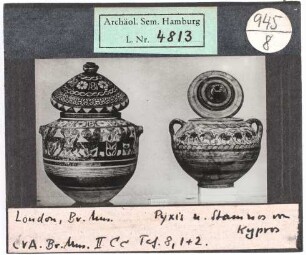 Archäol. Sem. Hamburg
L. Nr. 4813
945
8
London, Br. Mus. Pyxis u. Stamnos von
Kypros
CVA. Br. Mus. II Cc Tef. 8, 1+2.